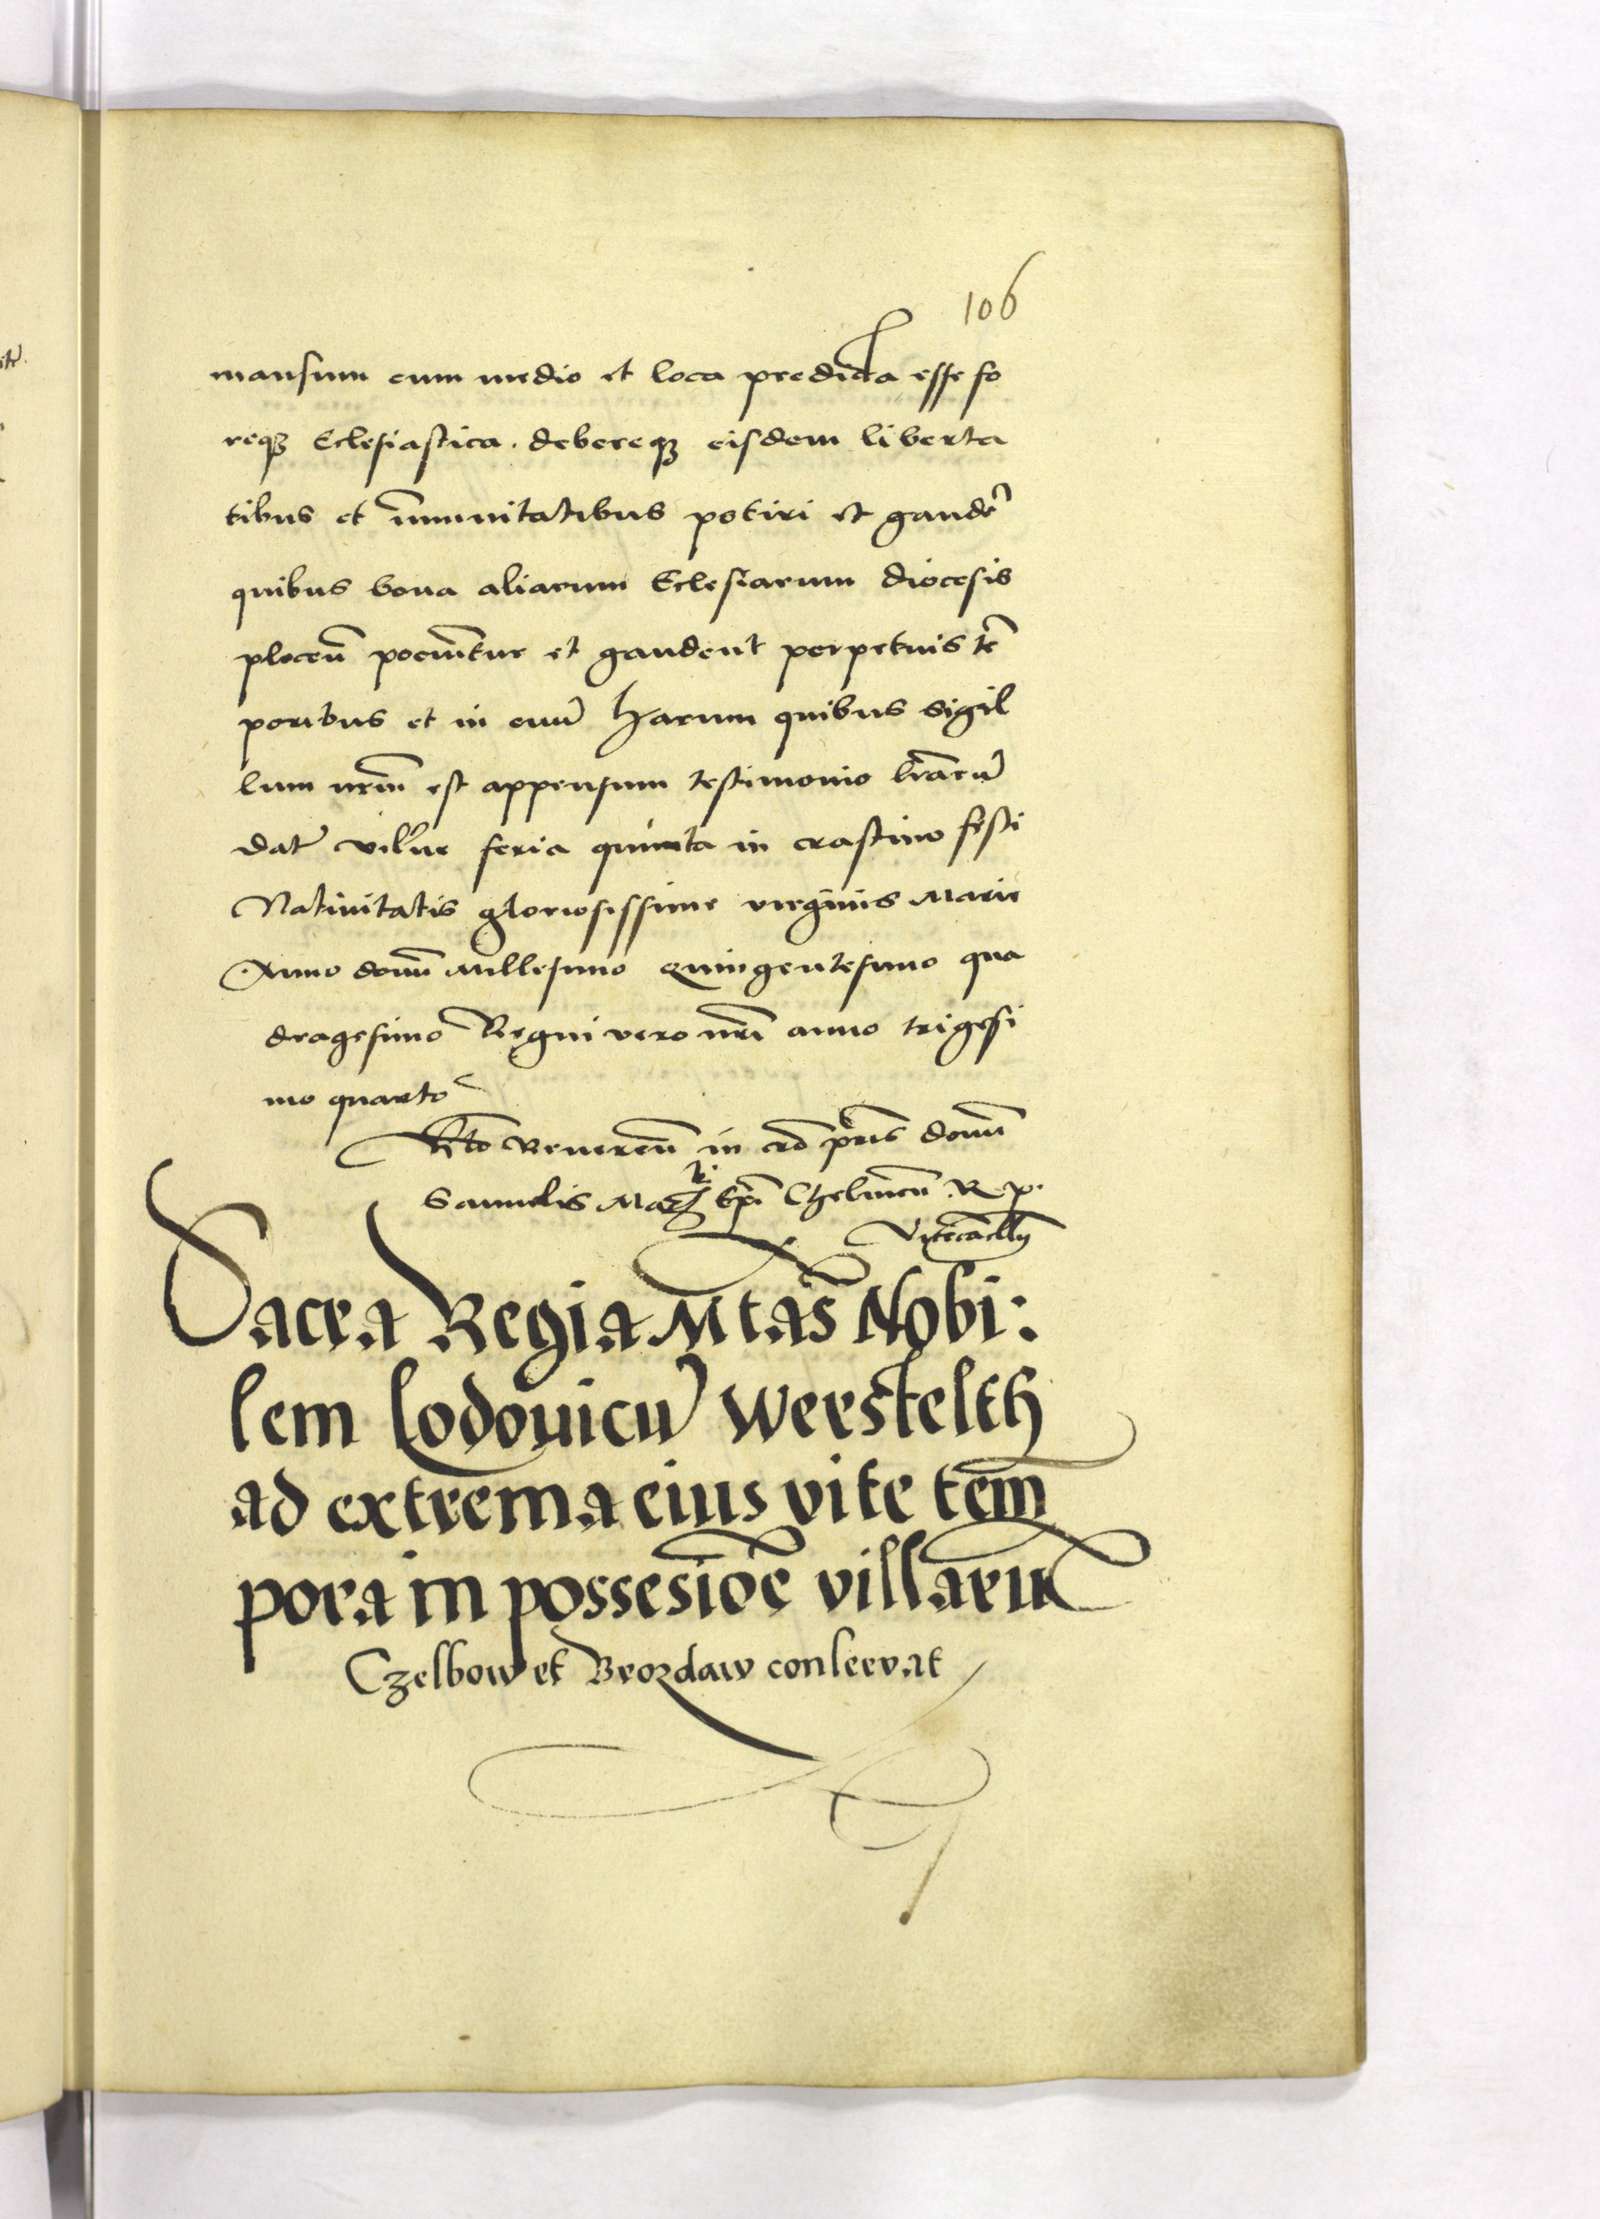 106
mansum cum medio et loca predicta esse fo
reqꝫ Eclesiastica. debereqꝫ eisdem liberta
tibus et im̄unitatibus potiri et gaudēr
quibus bona aliarum Eclesiarum diocesis
plocen̄ pociūtur et gaudent perpetuis tē
poribus et in euū Harum quibus sigil
lum nrm̄ est appensum testimonio lrārū
Dat̄ vilne feria quinta in crastino festi
Natiuitatis gloriosissime virginis Marie
Anno domī Millesimo Quingentesimo qua
dragesimo Regni vero nrī anno trigesi
mo quarto
Rlō Reueren̄ in crō prīs domī
Samuelis epī Chelmen̄ R. p.
Vicecācllrij
Sacra Regia Mtās Nobi:
lem Lodouicū Werstelth
ad extrema eius vite tem̄
pora in possesiōē villarū
Czelbow et Brozdaw conseruat